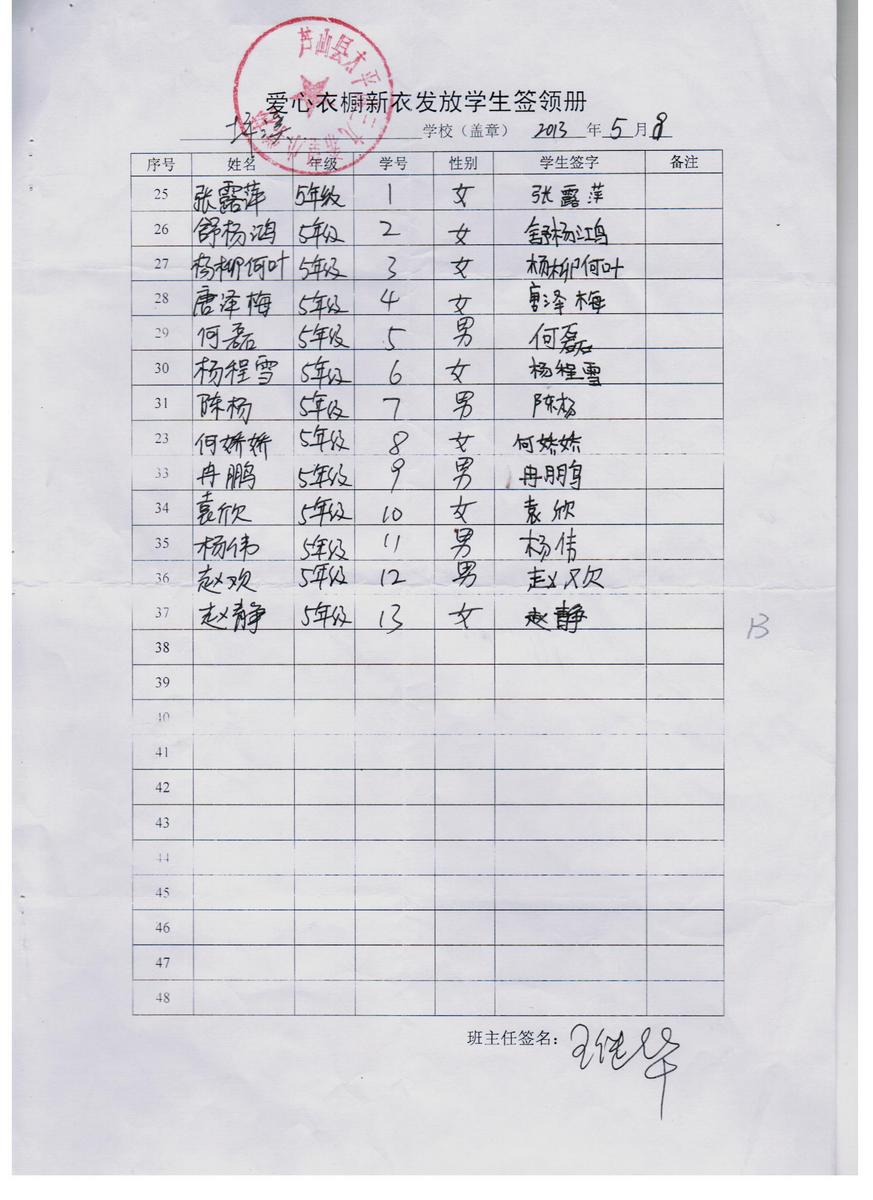 芦山县太平
爱心衣橱新衣发放学生签领册
学校（盖章） 2013 年 5 月
序号 姓名 年级 学号 性别 学生签字 备注
25 张露萍 5年级 1 女 张露萍
26 舒杨鸿 5年级 2 女 舒杨鸿
27 杨柳何叶 5年级 3 女 杨柳何叶
28 唐泽梅 5年级 4 女 唐泽梅
29 何磊 5年级 5 男 何磊
30 杨程雪 5年级 6 女 杨程雪
31 陈杨 5年级 7 男 陈杨
23 何娇娇 5年级 8 女 何娇娇
33 冉鹏 5年级 9 男 冉鹏
34 袁欣 5年级 10 女 袁欣
35 杨伟 5年级 11 男 杨伟
36 赵欢 5年级 12 男 赵欢
37 赵静 5年级 13 女 赵静
38
39
40
41
42
43
44
45
46
47
48
班主任签名：
13